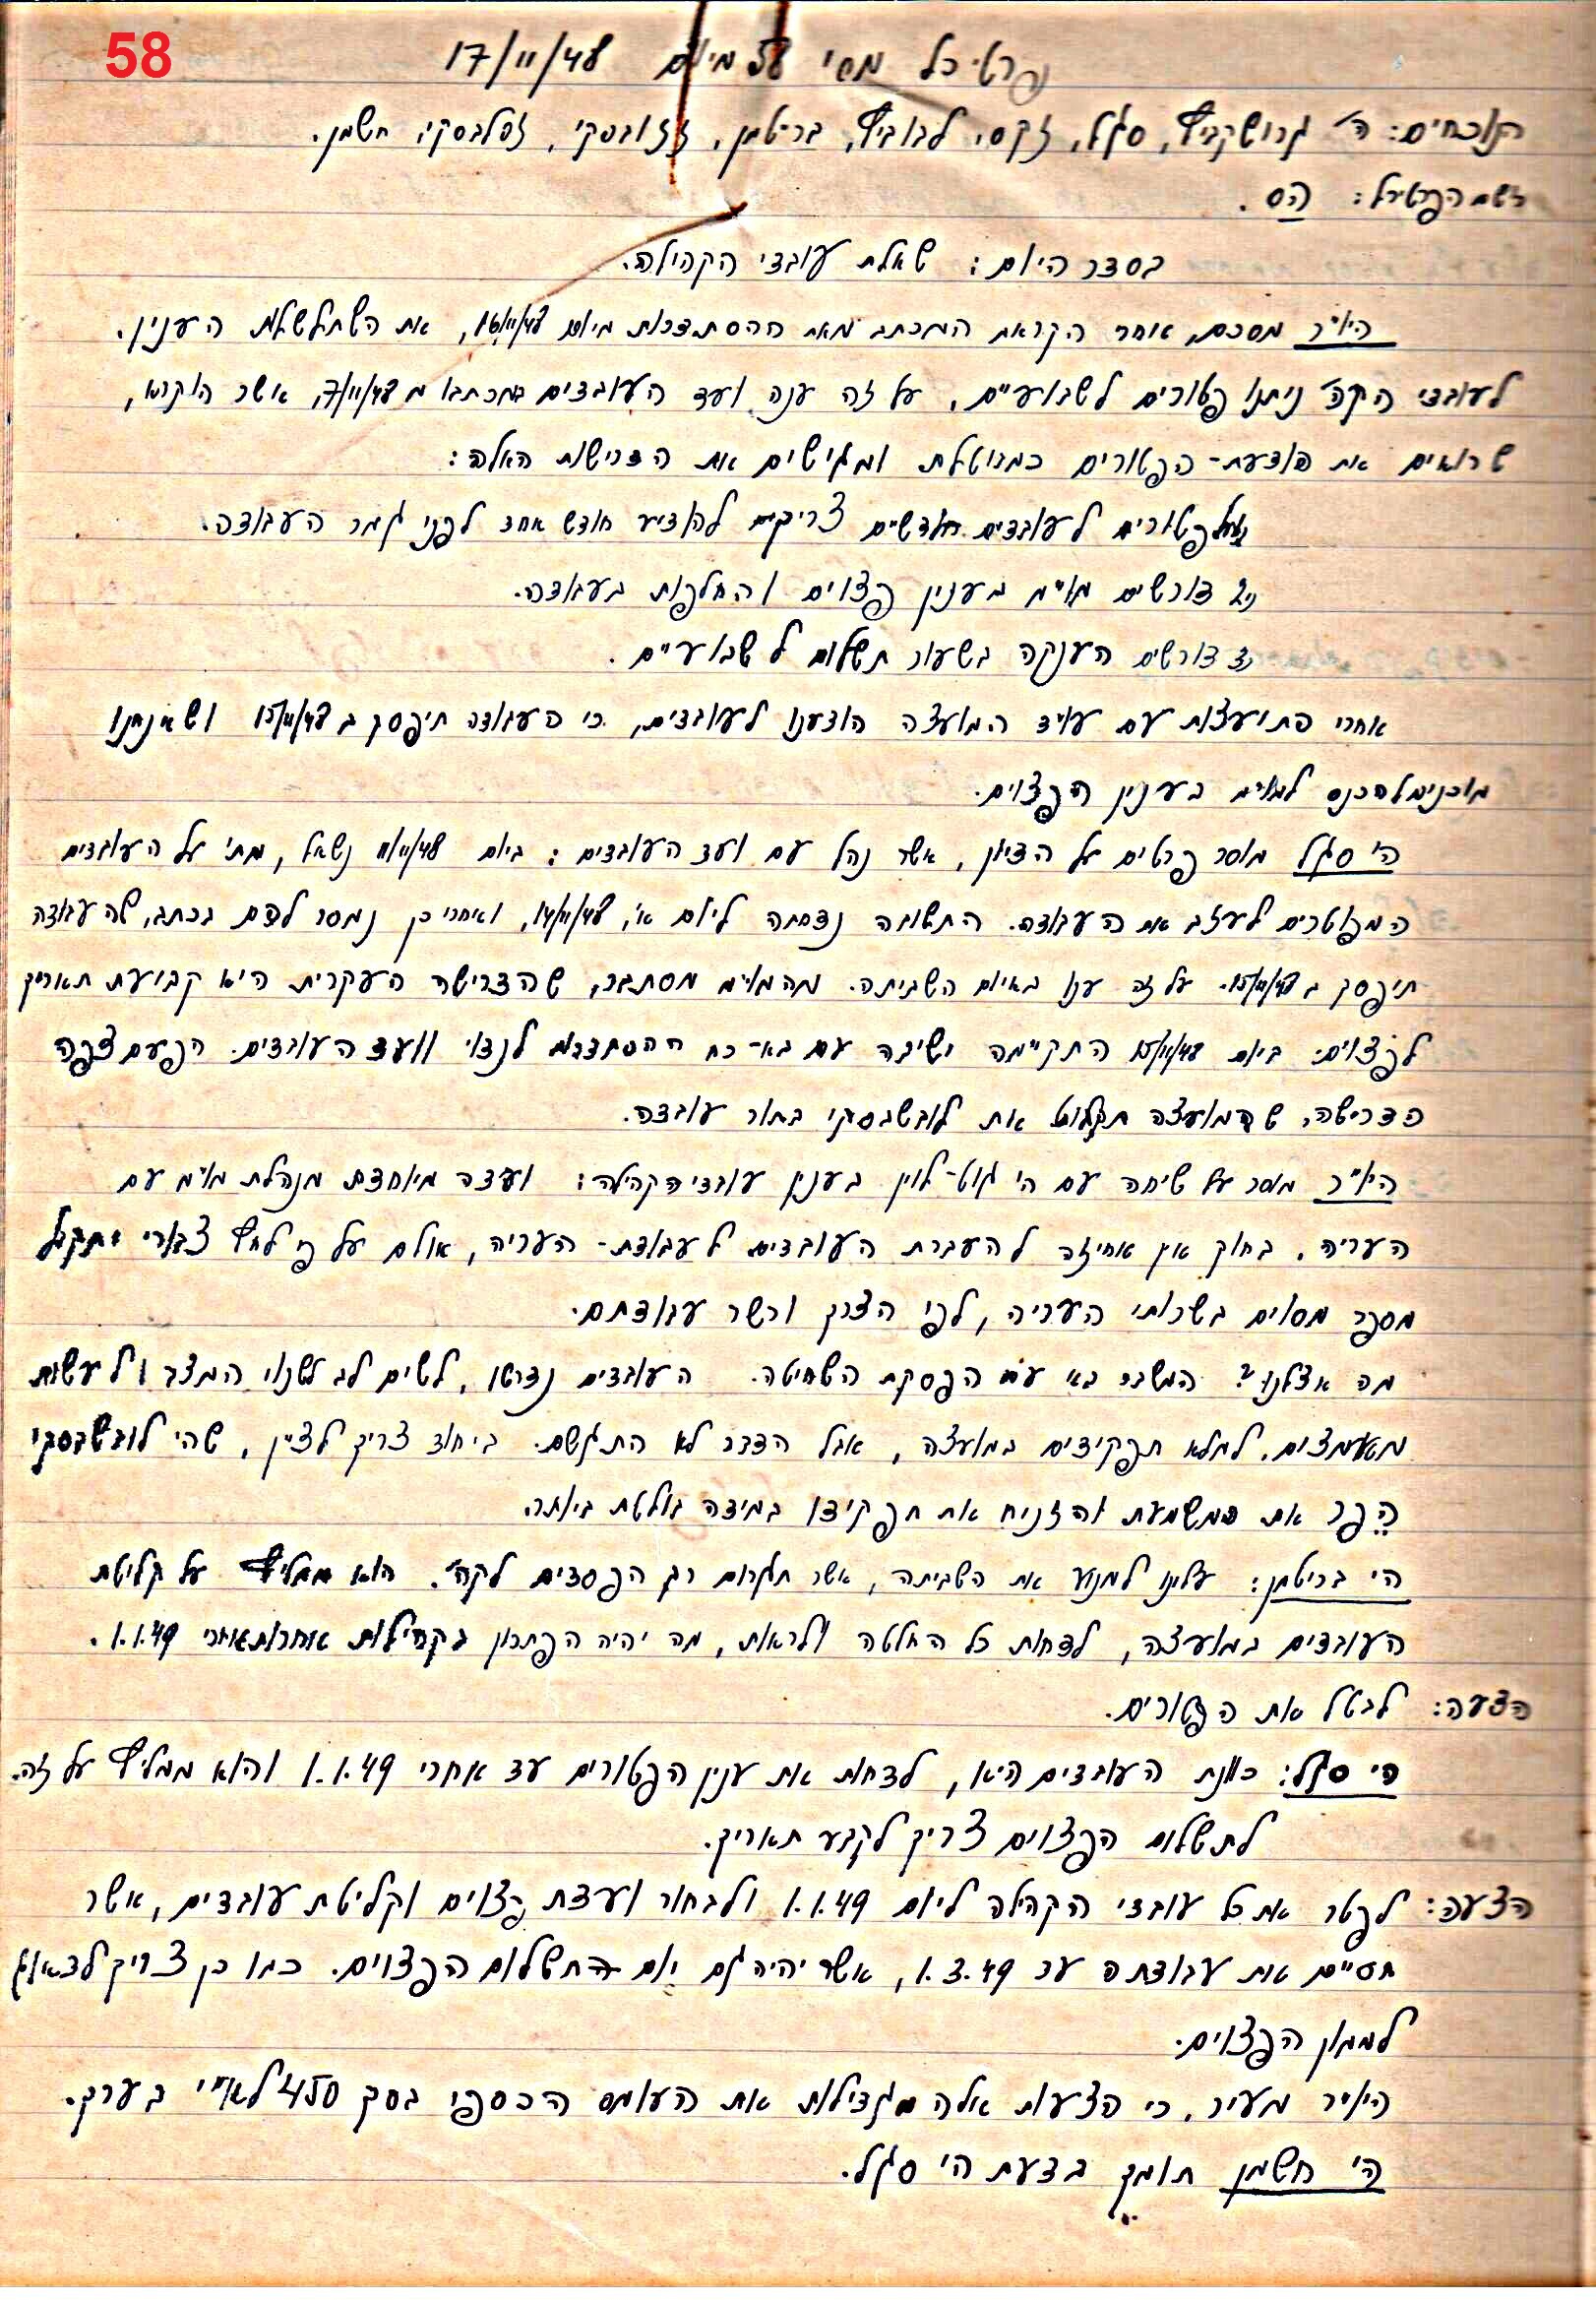 58
פרטיכל מס' 58 מיום 17/11/48
הנוכחים: ה"ה גרושקביץ, סגל, זקס, לבוביץ, בריטמן, זזובסקי, זסלבסקי, חשמן.
רשם הפרטיכל: הס.
בסדר היום: שאלת עובדי הקהילה.
היו"ר מסכם, אחר הקראת המכתב מאת ההסתדרות מיום 16/11/48, את השתלשלות הענין.
לעובדי הקה' ניתנו פטורים לשבועיים, על זה ענה ועד העובדים במכתבו מ 7/11/48, אשר הוקרא,
שרואים את הודעת-הפטורים כמבוטלת ומגישים את הדרישות האלה:
1) פטורים לעובדים חודשיים צריכים להודיע חודש אחד לפני גמר העבודה.
2) דורשים מו"מ בענין פצוים והחלפות בעבודה.
3) דורשים הענקה בשעור תשלום לשבועיים.
אחרי התיעצות עם עו"ד המועצה הודענו לעובדים, כי העבודה תיפסק ב 15/11/48 ושאנחנו
מוכנים להכנס למו"מ בענין הפצוים.
ה' סגל מוסר פרטים על הדיון, אשר נהל עם ועד העובדים: ביום 11/11/48 נשאל, מתי על העובדים
המפוטרים לעזב את העבודה. התשובה נדחתה ליום א', 14/11/48, ואחרי כן נמסר להם בכתב, שהעבודה
תיפסק ב 15/11/48. על זה ענו באיום השביתה. מהמו"מ מסתבר, שהדרישה העקרית היא קביעת תאריך
לפצוים. ביום 15/11/48 התקיימה ישיבה עם בא-כח ההסתדרות לנדוי וועד העובדים. הפעם צפה
הדרישה, שהמועצה תקלוט את לובשבסקי בתור עובדה.
היו"ר מוסר על שיחה עם ה' גוט-לוין בענין עובדי הקהילה: ועדה מיוחדת מנהלת מו"מ עם
העריה. בחוק אין אחיזה להעברת העובדים לעבודת-העריה, אולם על פי לחץ צבורי יתקבל
מספר מסוים בשרותי העריה, לפי הצרך וכשר עבודתם.
מה אצלנו? המשבר בא עם הפסקת השחיטה. העובדים נדרשו, לשים לב לשנוי המצב ולעשות
מאמצים, למלא תפקידים במועצה, אבל הדבר לא התגשם. ביחוד צריך לציין, שה' לובשבסקי
הפר את המשמעת והזניח את תפקידו במידה בולטת ביותר.
ה' בריטמן: עלינו למנוע את השביתה, אשר תגרום רק הפסדים לקה'. הוא ממליץ על קליטת
העובדים במועצה, לדחות כל החלטה ולראות, מה יהיה הפתרון בקהילות אחרות אחרי 1.1.49.
הצעה: לבטל את הפטורים.
ה' סגל: כוונת העובדים היא, לדחות את ענין הפטורים עד אחרי 1.1.49 והוא ממליץ על זה.
לתשלום הפצוים צריך לקבע תאריך.
הצעה: לפטר את כל עובדי הקהילה ליום 1.1.49 ולבחור ועדת פצוים וקליטת עובדים, אשר
תסיים את עבודתה עד 1.3.49, אשר יהיה גם יום התשלום הפצוים. כמו כן צריך לדאוג
למימון הפצוים.
היו"ר מעיר, כי הצעות אלה מגדילות את העומס הכספי בסך 450 לא"י בערך.
ה' חשמן תומך בצעת ה' סגל.